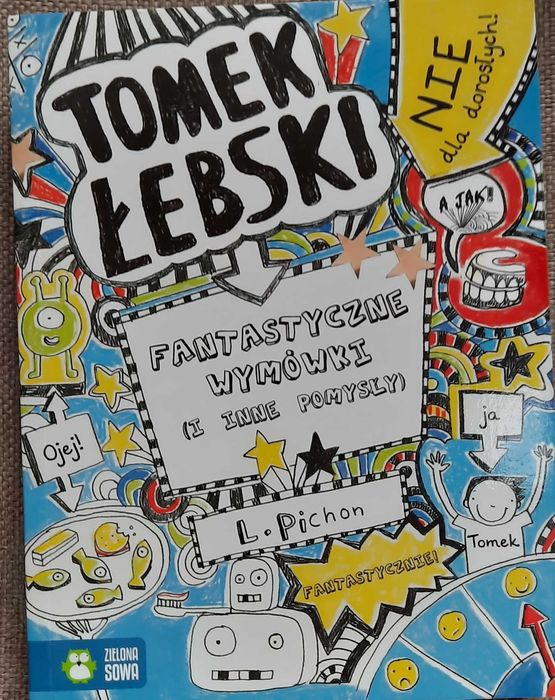 TOMEK
ŁEBSKI
NIE
dla dorosłych!
A JAK!
FANTASTYCZNE
WYMÓWKI
(I INNE POMYSŁY)
Ojej!
ja
L. Pichon
Tomek
FANTASTYCZNIE!
ZIELONA
SOWA